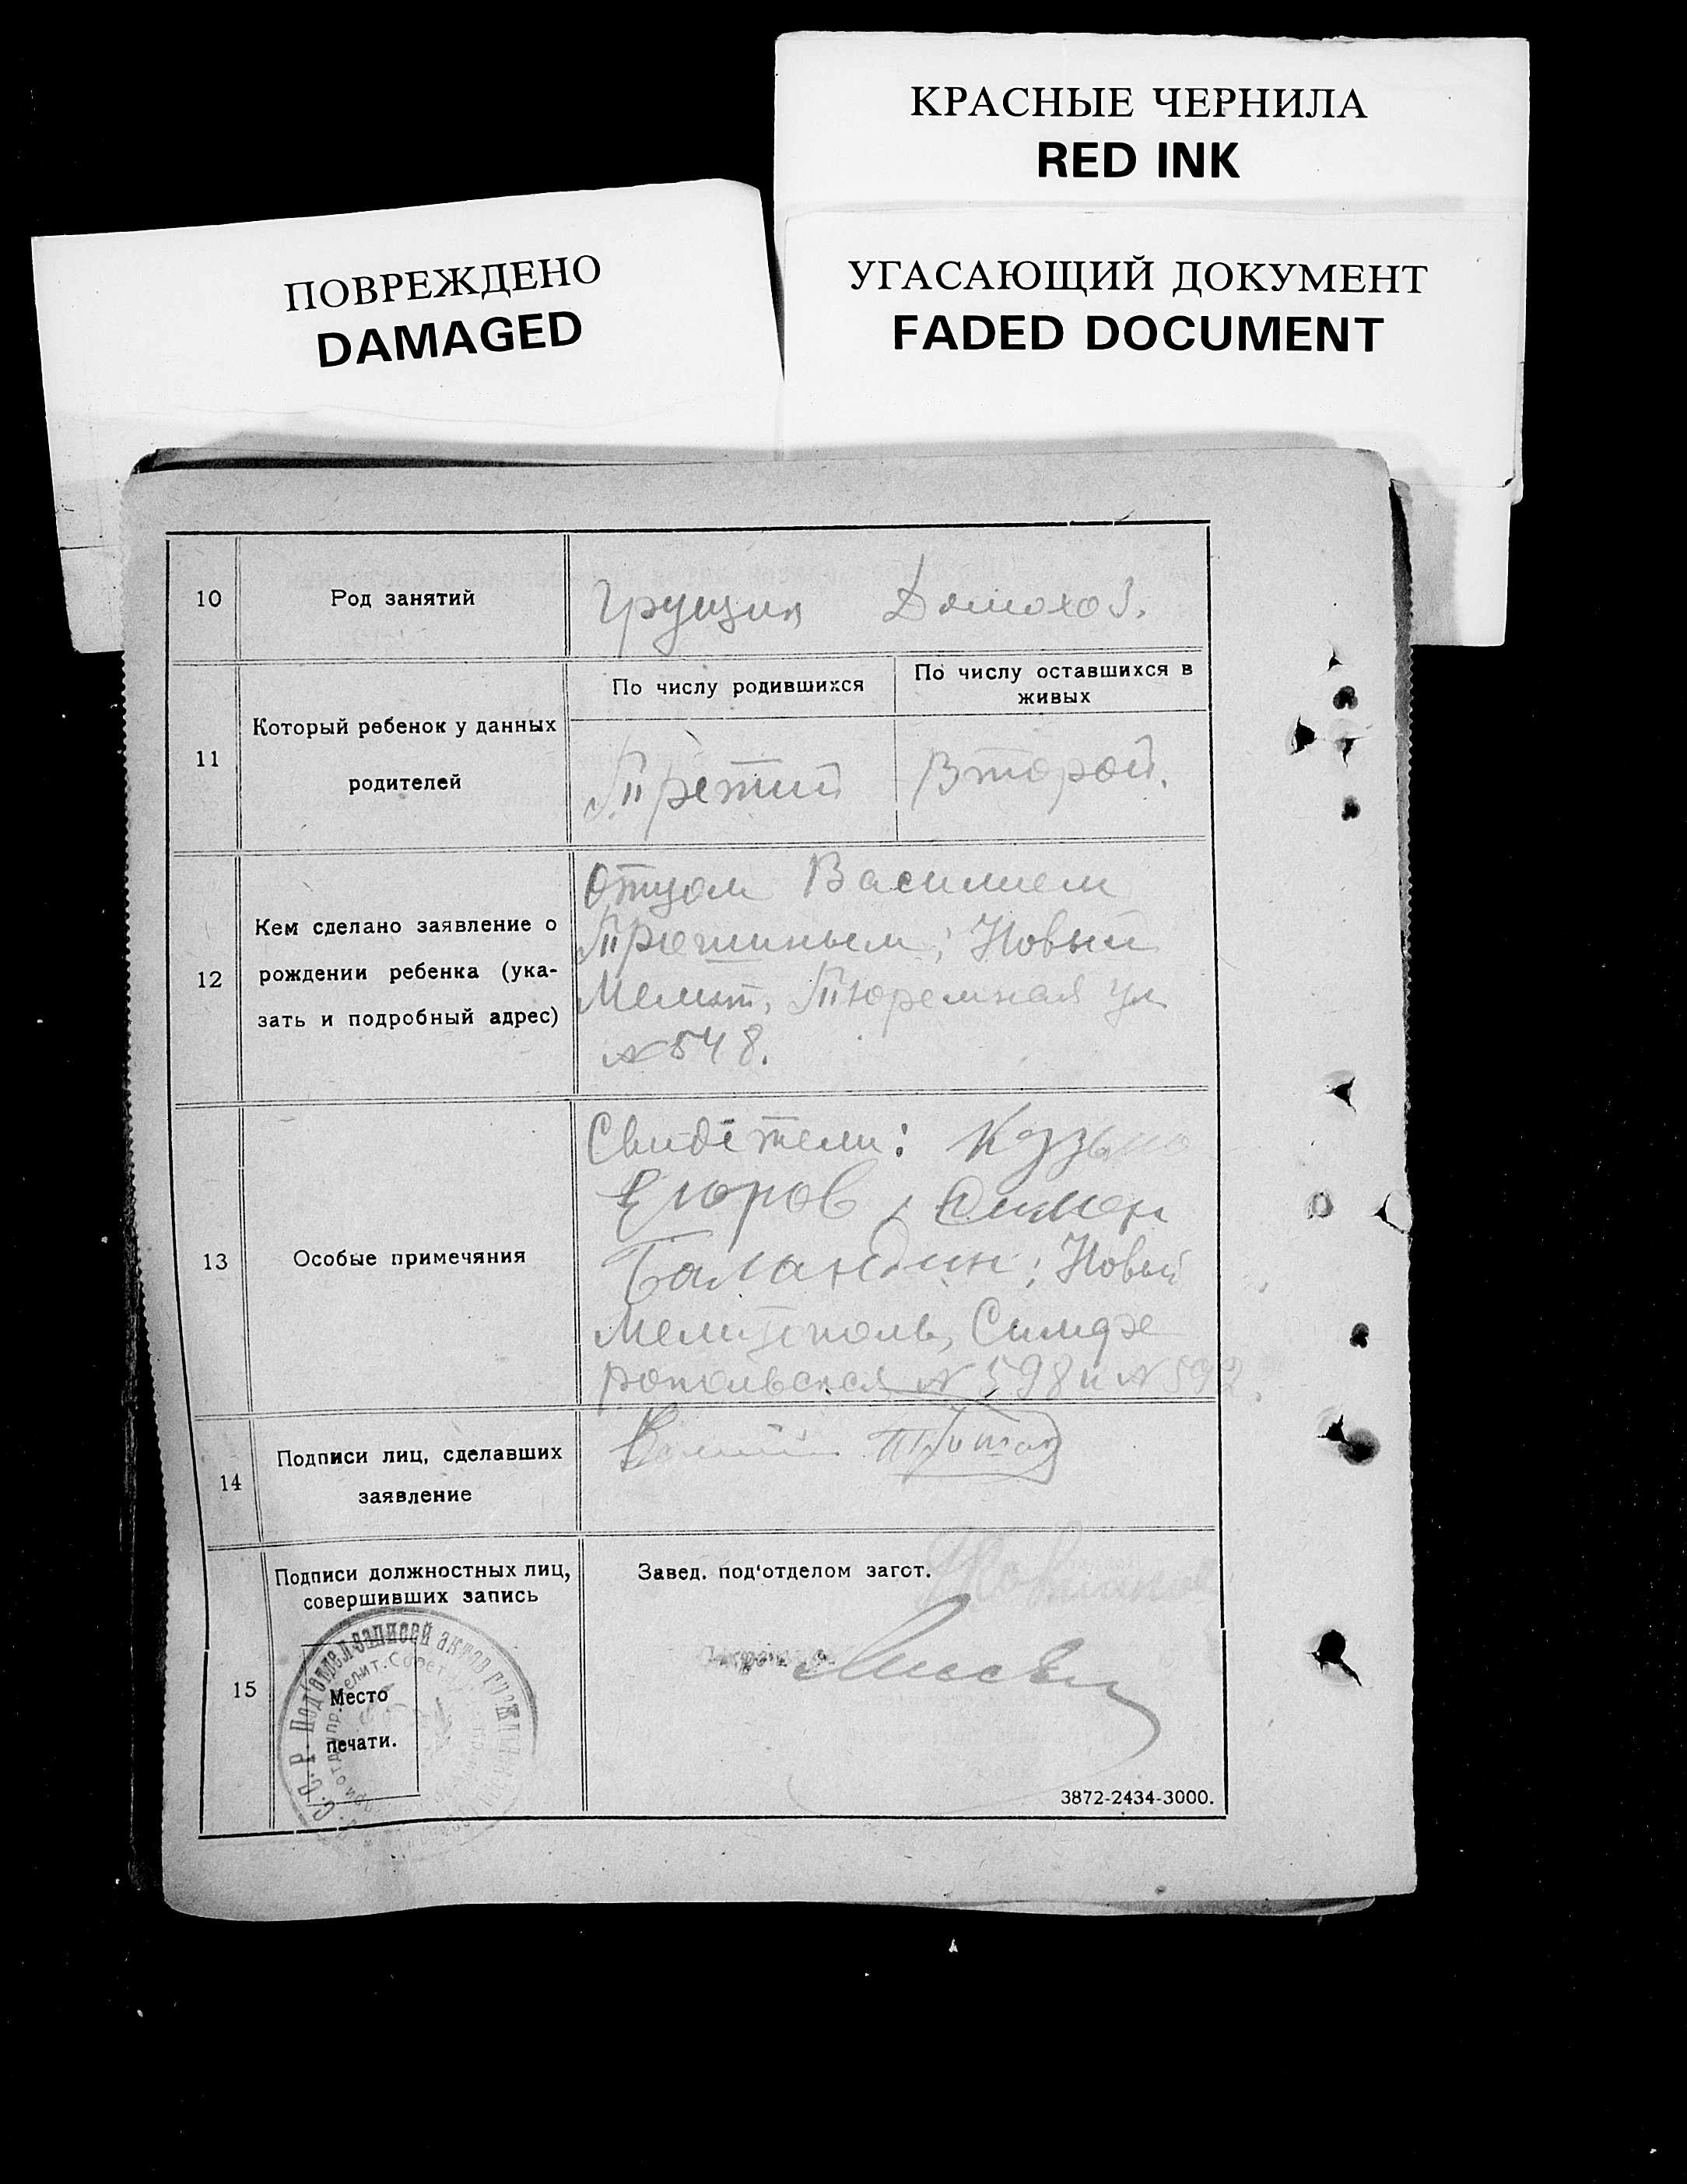 КРАСНЫЕ ЧЕРНИЛА
RED INK
ПОВРЕЖДЕНО
DAMAGED
УГАСАЮЩИЙ ДОКУМЕНТ
FADED DOCUMENT
10 Род занятий Грущик Домохоз.
По числу родившихся
По числу оставшихся в
живых
11 Который ребенок у данных
родителей
Третий Второй.
12 Кем сделано заявление о
рождении ребенка (ука-
зать и подробный адрес)
Отцом Василием
Новый
Мелит, Тюремная ул
№ 548.
13 Особые примечяния
Свидетели: Кузьма
Егоров, Симен
Баландин; Новый
Мелитополь, Симфе
ропольская № 598 и № 592.
14 Подписи лиц, сделавших
заявление
15 Подписи должностных лиц,
совершивших запись
Завед. под'отделом загот.
Под'отдел записей актов
Место
печати.
3872-2434-3000.